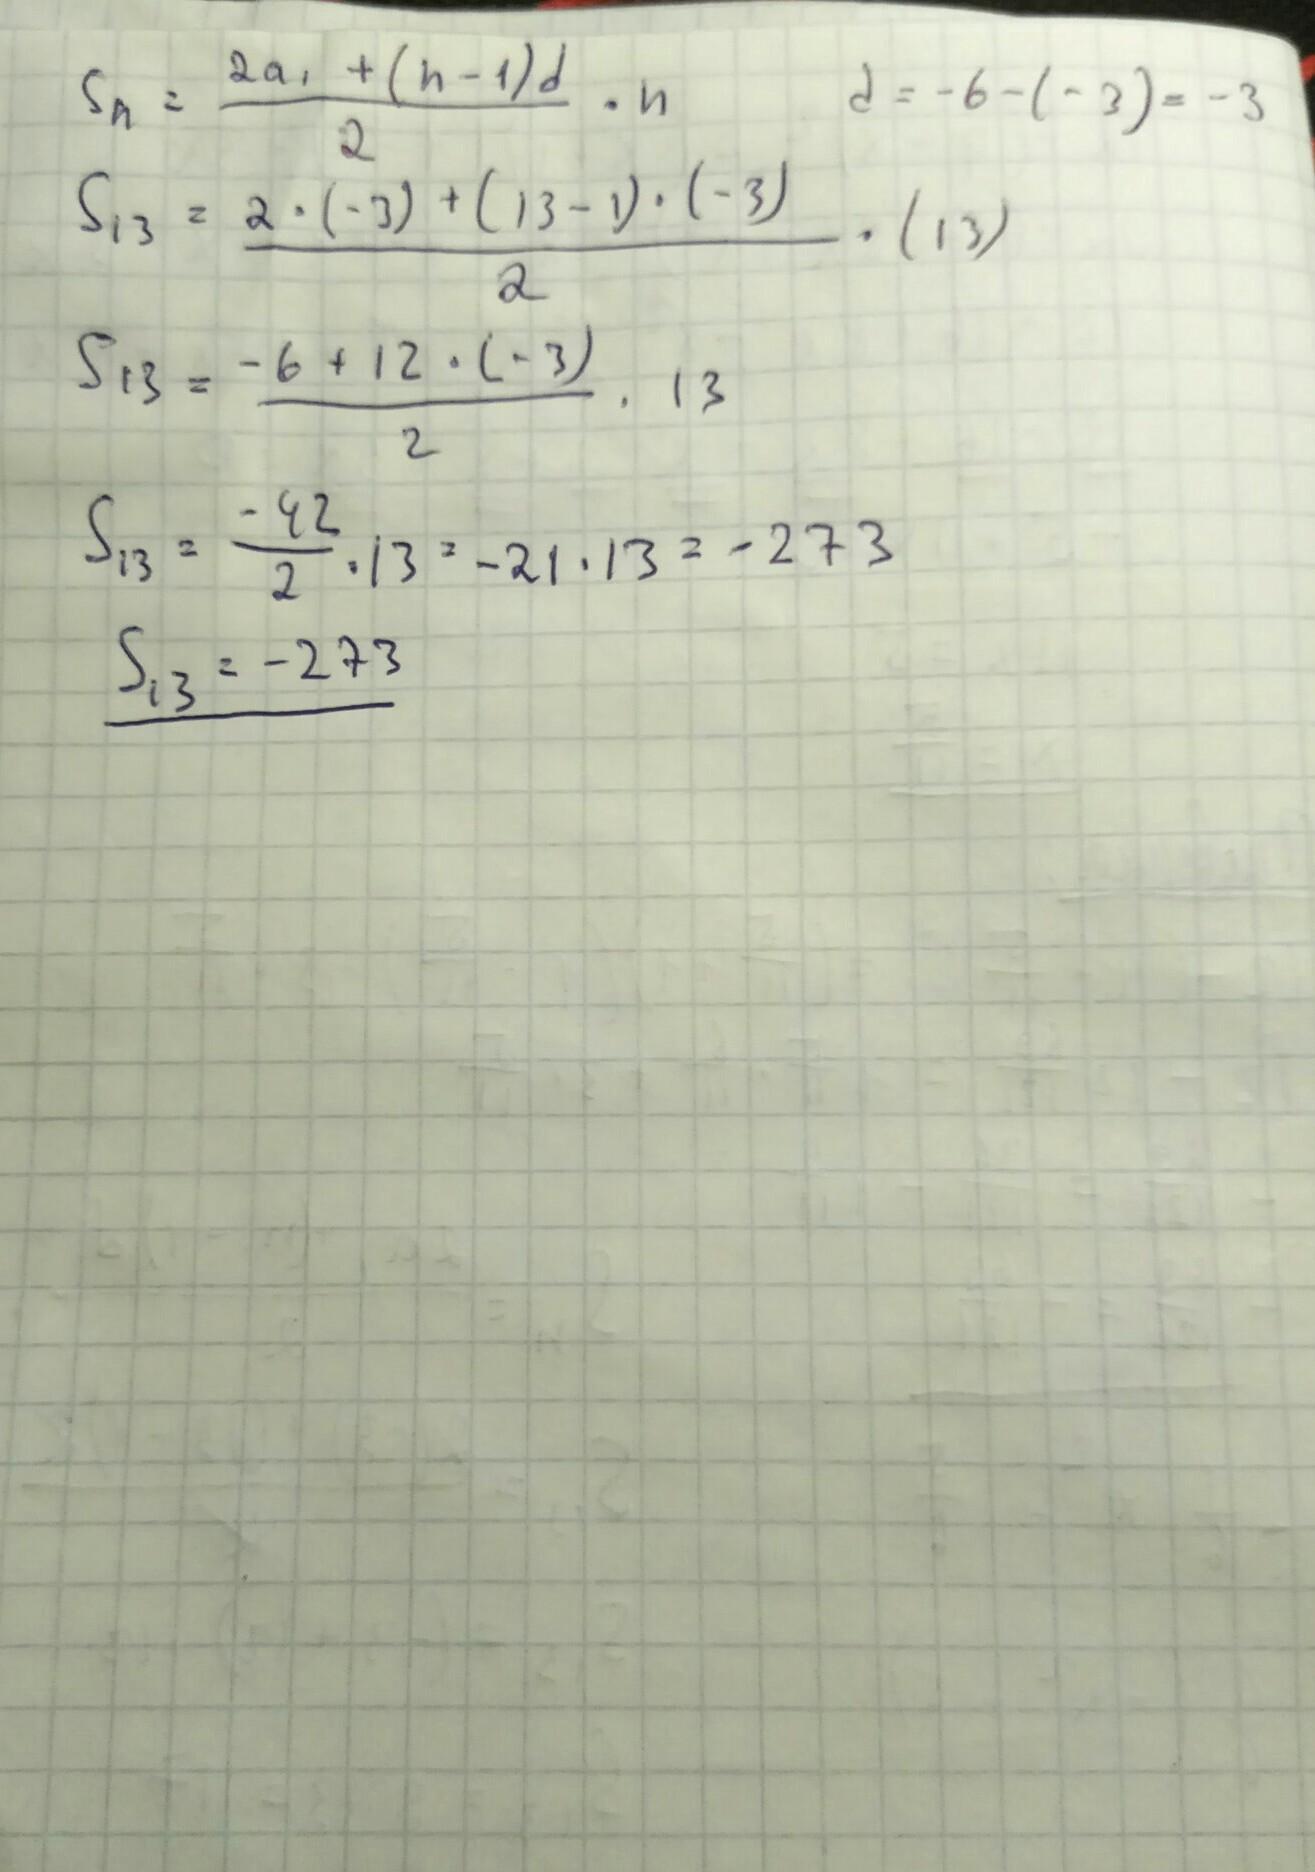 Sn = (2a₁ + (n-1)d)/2 · n    d = -6-(-3) = -3
S₁₃ = (2·(-3)+(13-1)·(-3))/2 · (13)
S₁₃ = (-6+12·(-3))/2 · 13
S₁₃ = -42/2 · 13 = -21·13 = -273
S₁₃ = -273